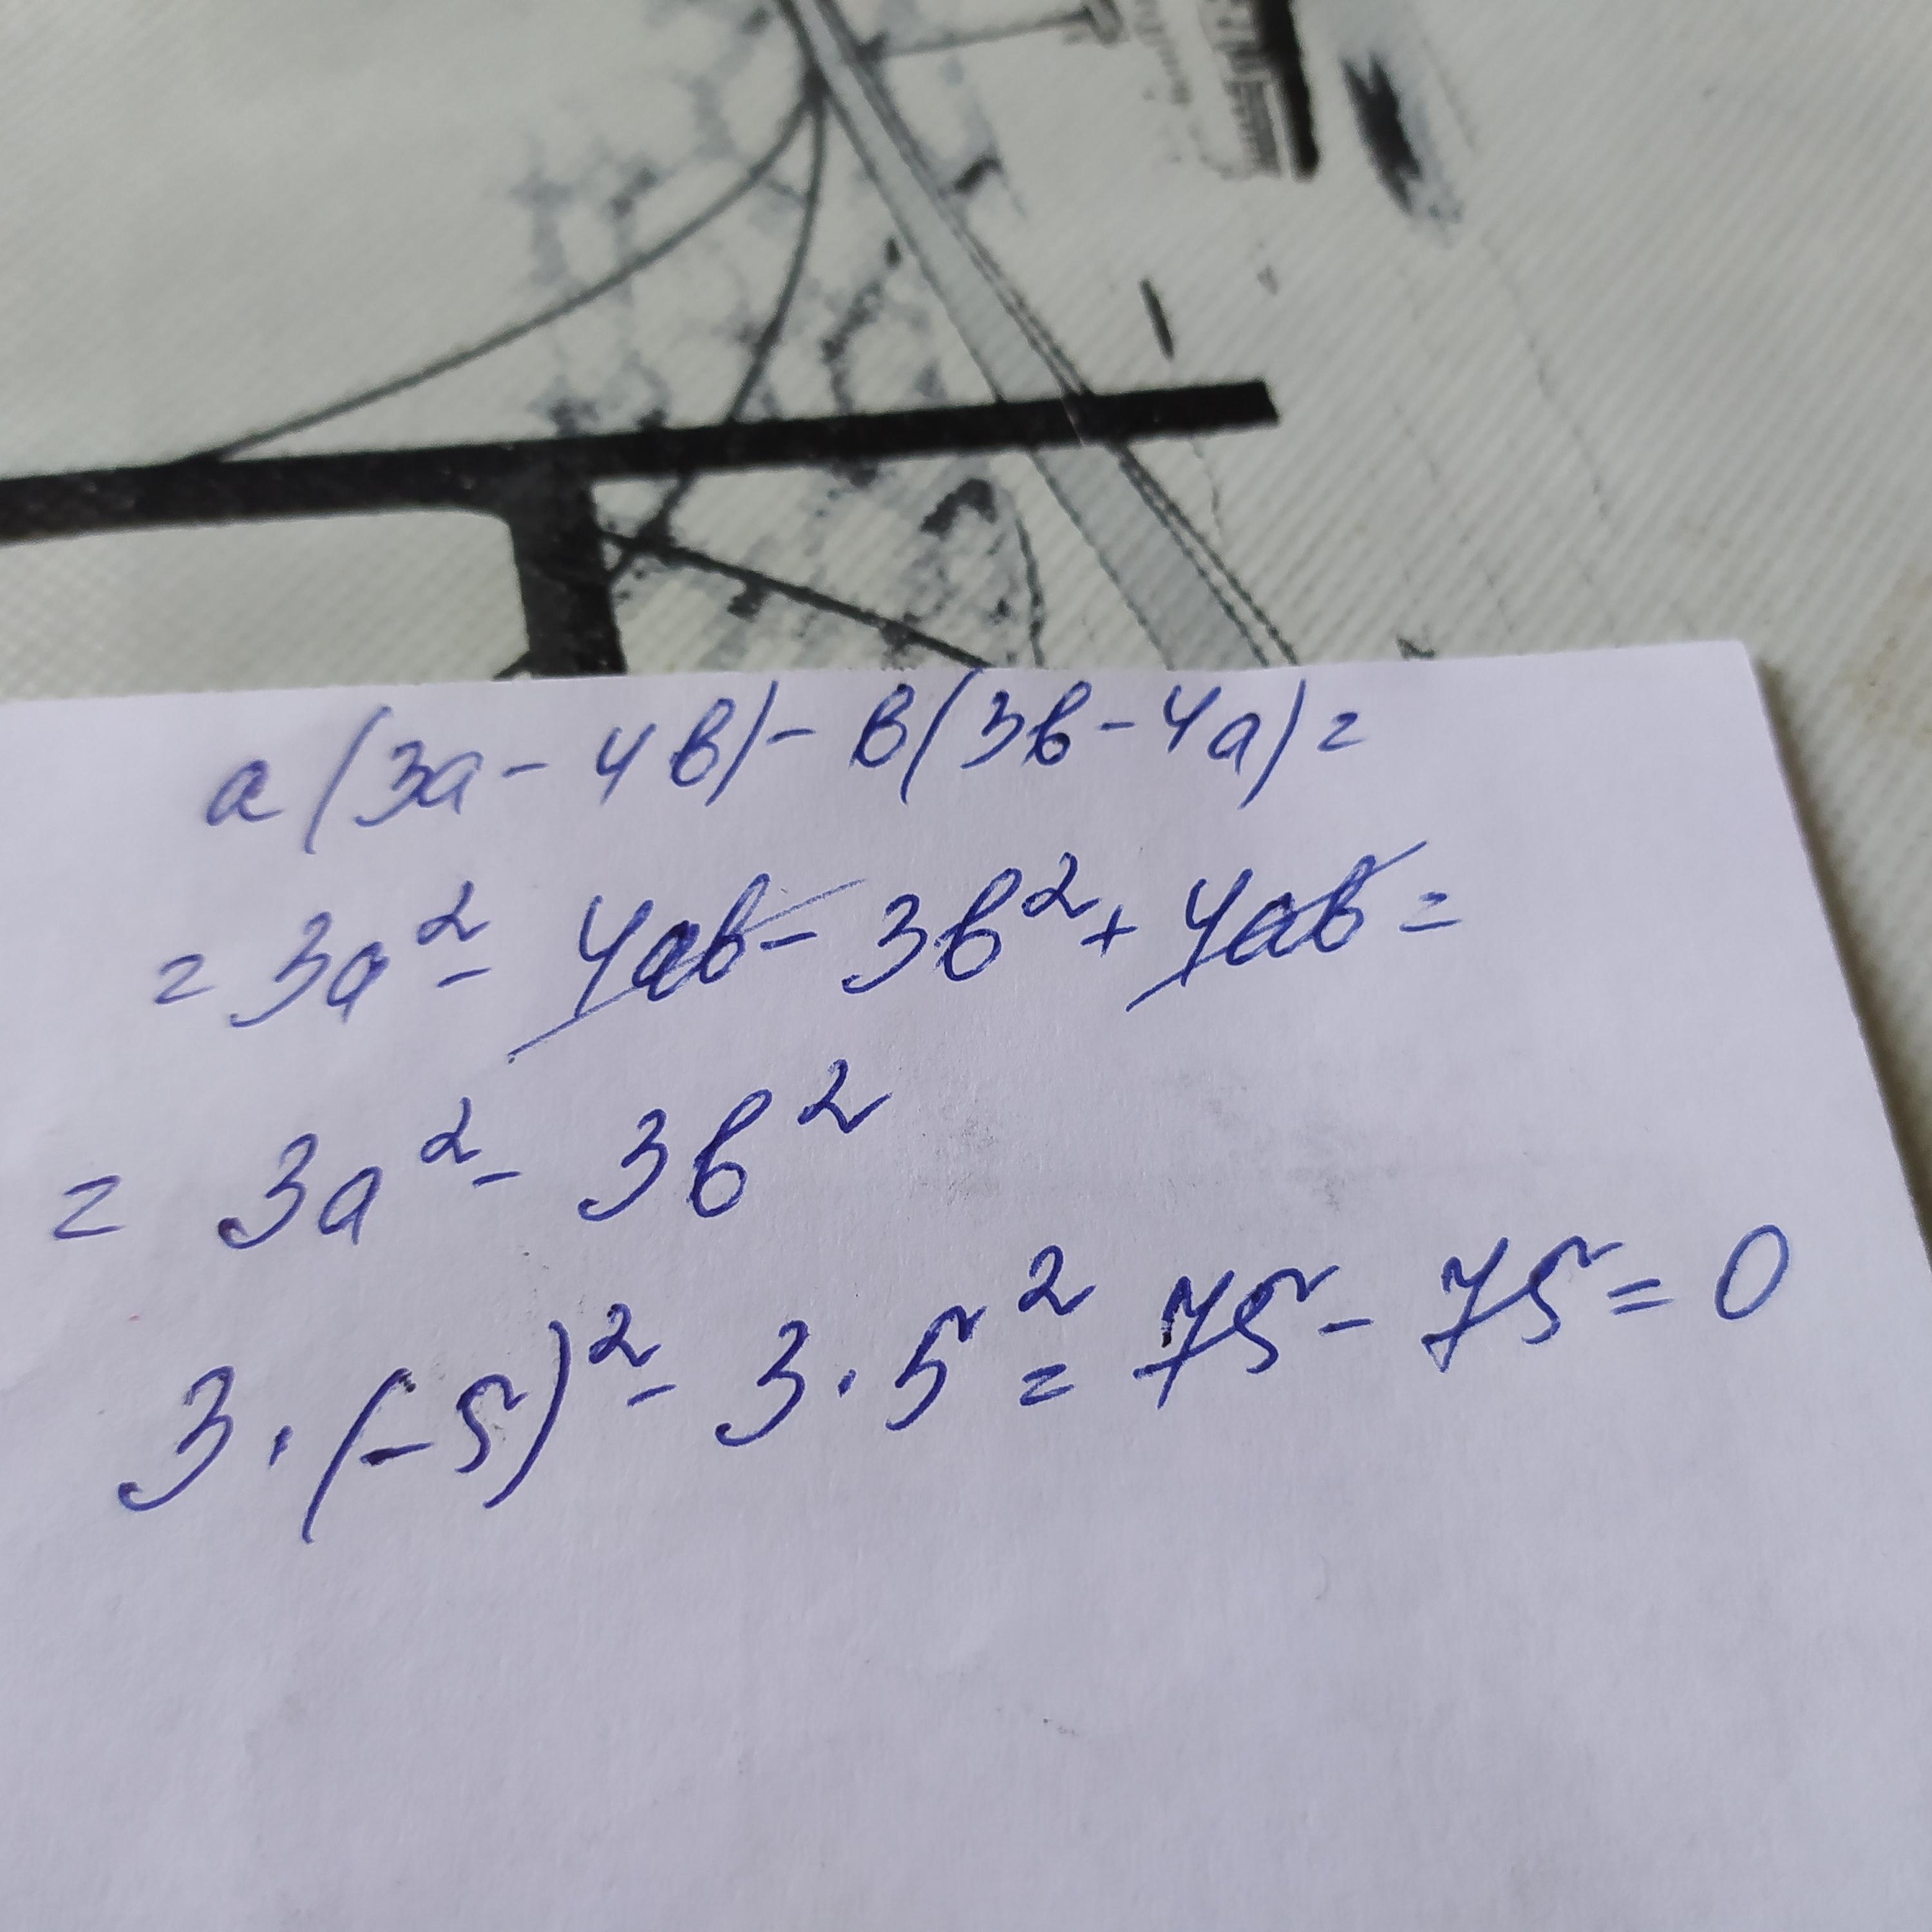 a(3a-4b)-b(3b-4a)=
=3a²-4ab-3b²+4ab=
=3a²-3b²
3·(-5)²-3·5²=75-75=0